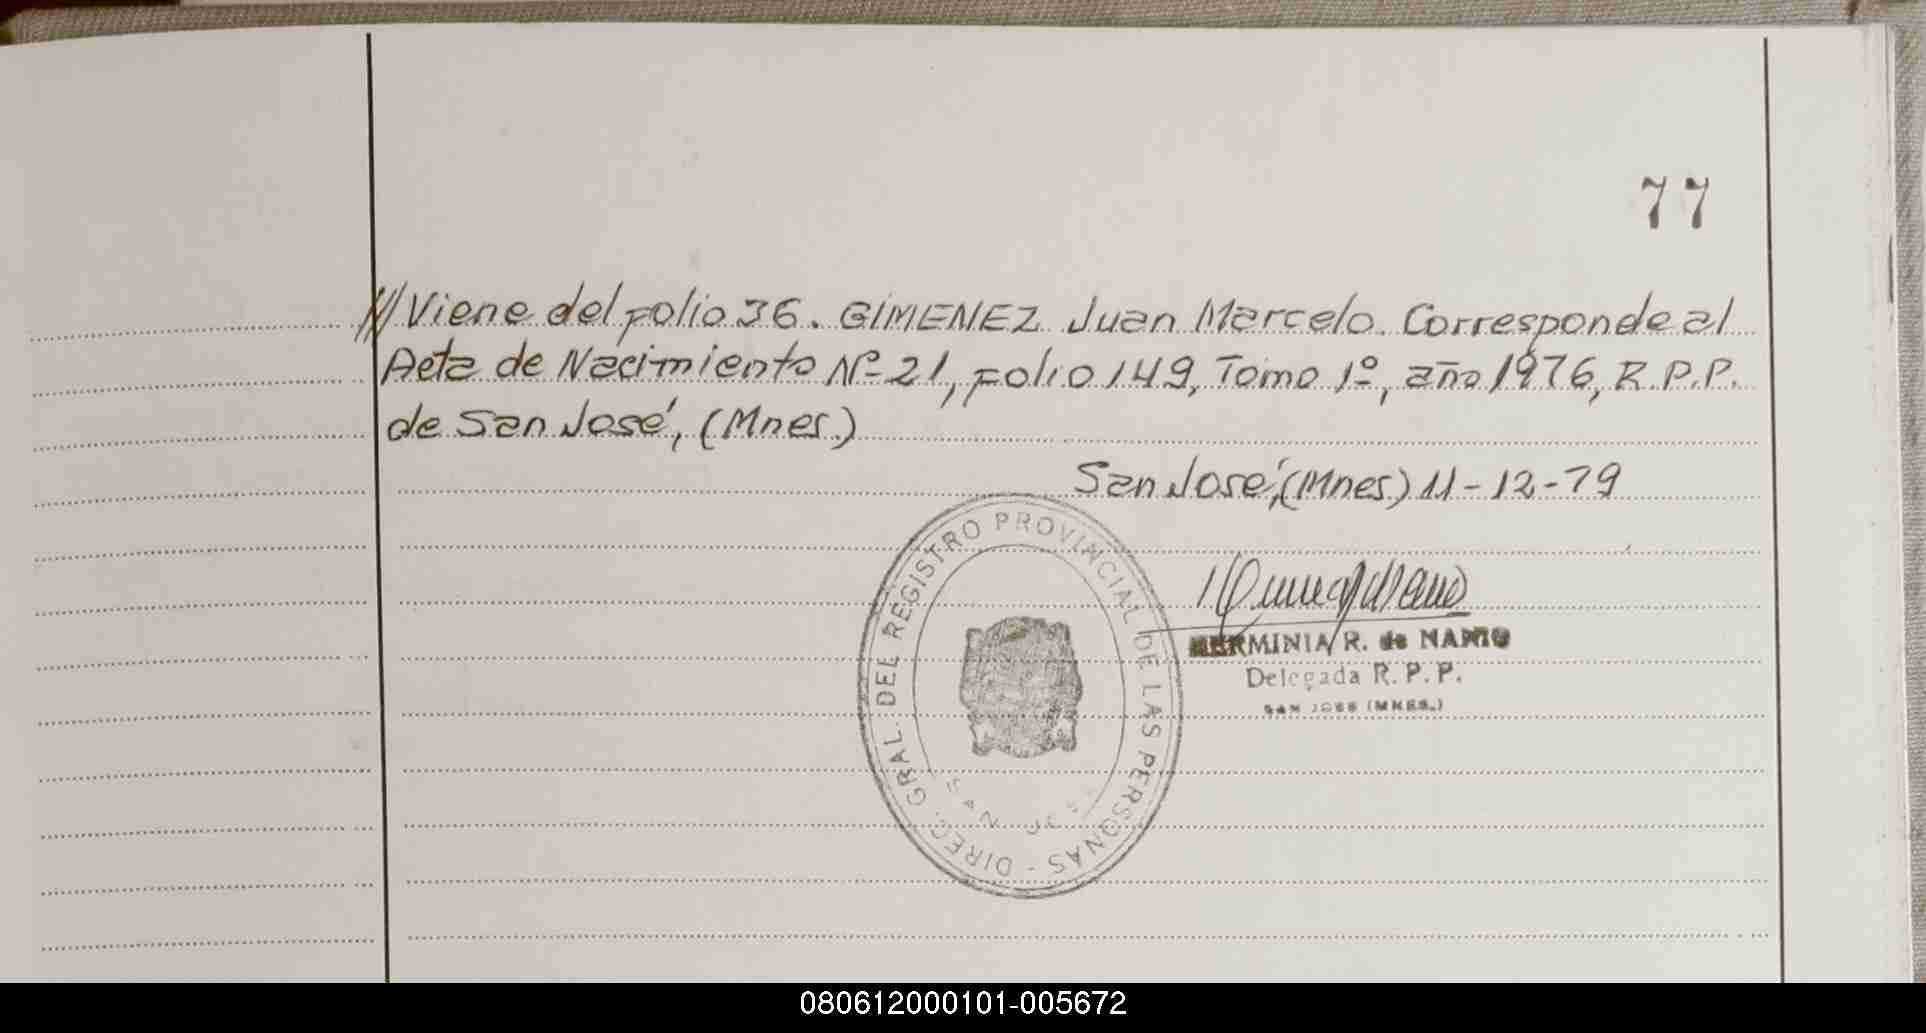 77
/// Viene del folio 36. GIMENEZ Juan Marcelo. Corresponde al
Acta de Nacimiento Nº 21, folio 149, Tomo 1º, año 1976, R.P.P.
de San José, (Mnes.)
San José, (Mnes) 11-12-79
DIREC. GRAL. DEL REGISTRO PROVINCIAL DE LAS PERSONAS -
SAN JOSE
HERMINIA R. de
Delegada R. P. P.
SAN JOSE (MNES.)
080612000101-005672